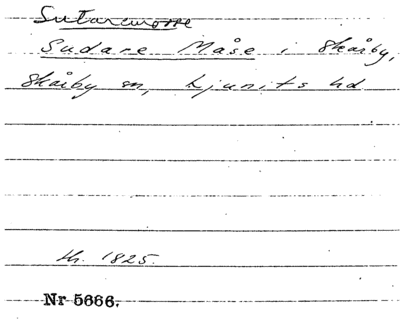 Sutaremosse
Sudare Måse i Skårby,
Skårby sn, Ljunits hd
th. 1825.
Nr 5666.